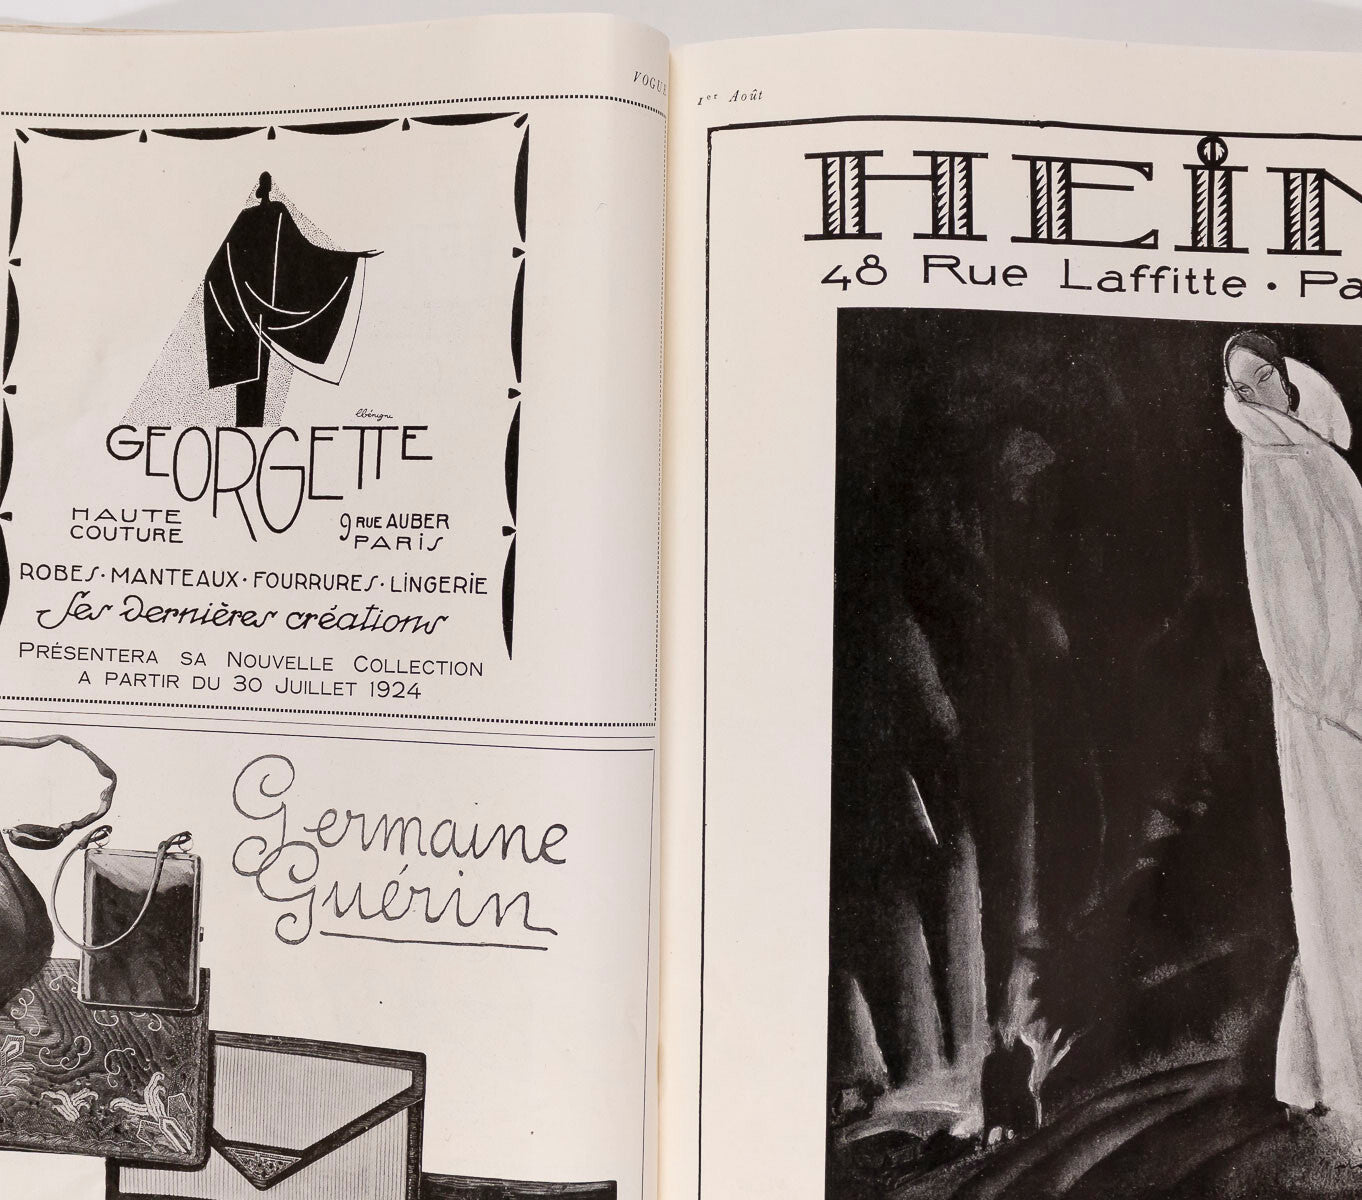 VOGUE
GEORGETTE
HAUTE COUTURE
9 RUE AUBER PARIS
ROBES · MANTEAUX · FOURRURES · LINGERIE
Ses Dernières créations
PRÉSENTERA SA NOUVELLE COLLECTION
A PARTIR DU 30 JUILLET 1924
Germaine
Guérin
1er Août
HEIN
48 Rue Laffitte · Pa